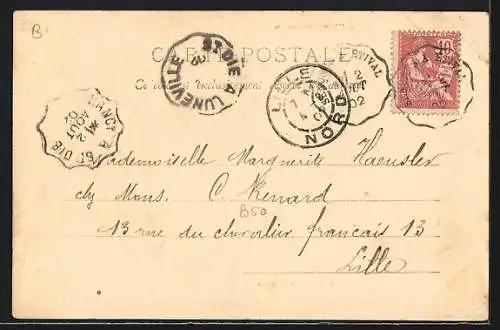 B
CARTE POSTALE
Ce côté est exclusivement réservé à l'adresse
ST DIÉ A LUNEVILLE
LILLE
NORD
ESTIVAL
2
02
10
NANCY A ST DIÉ
2
AOUT
02
Mademoiselle Marguerite Haensler
chz Mons. C. Renard
B50
13 rue du chevalier francais 13
Lille